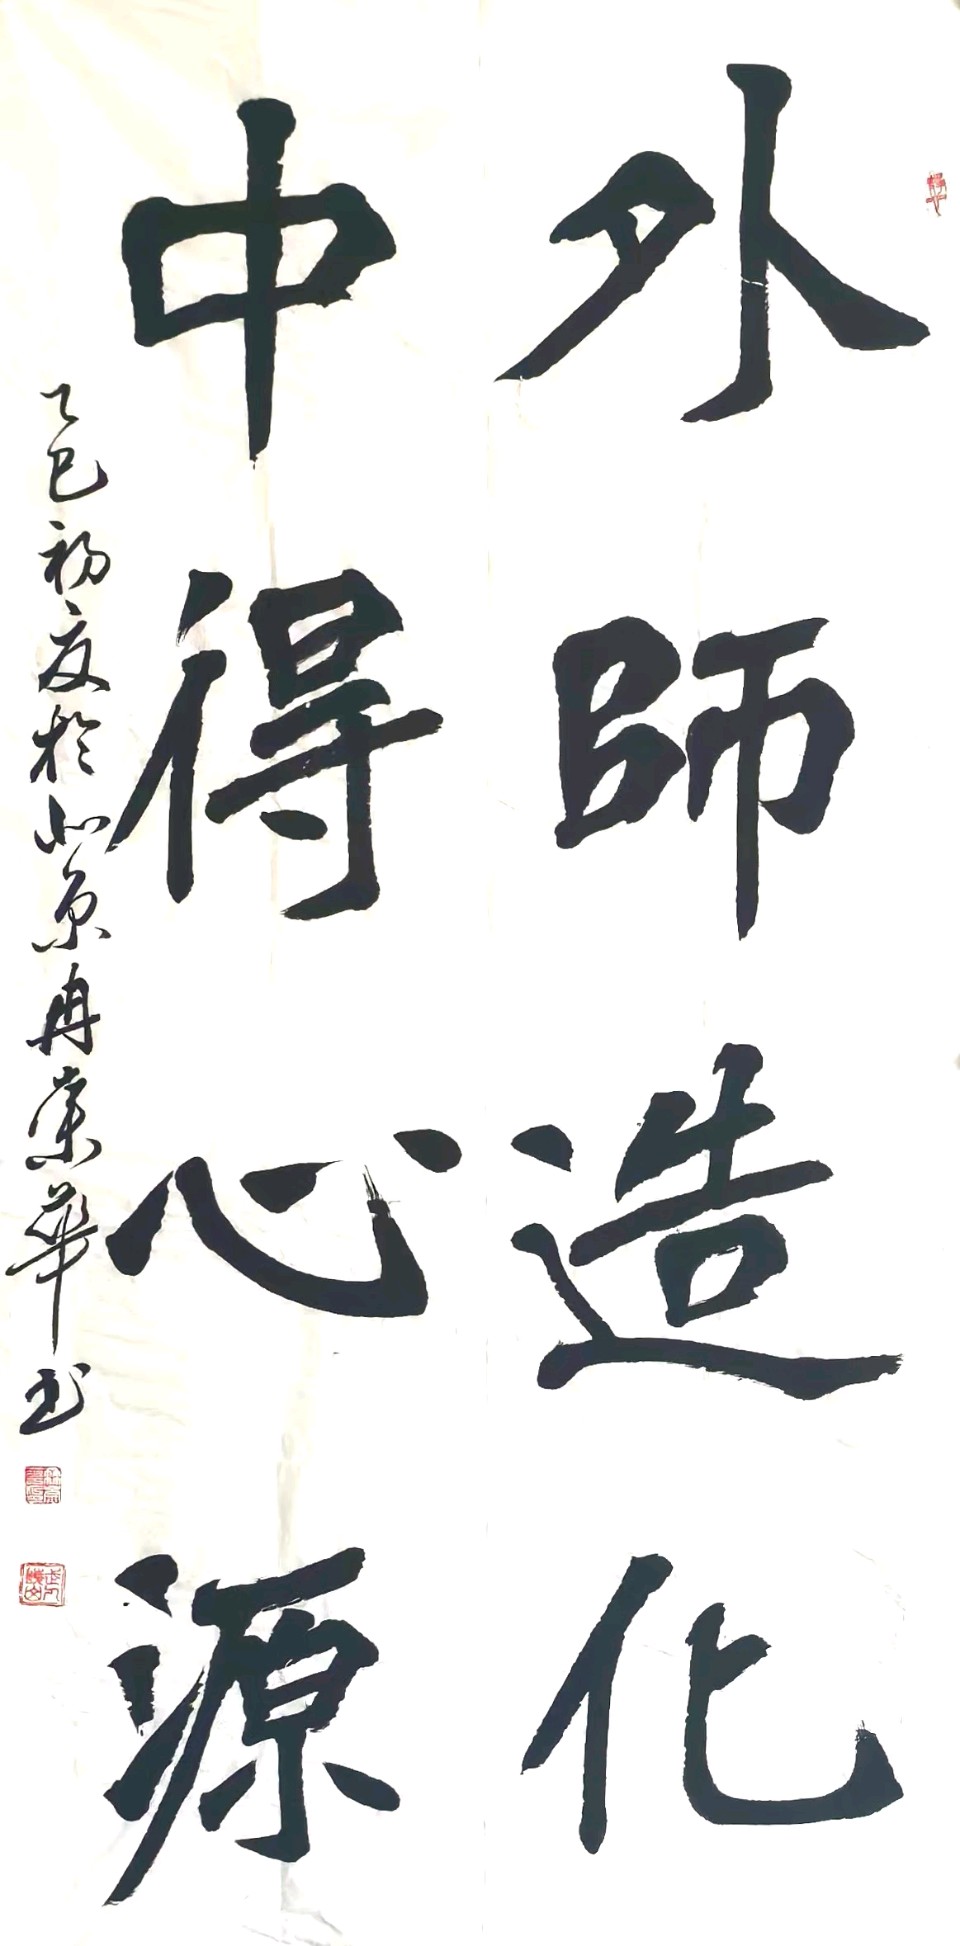 外師造化
中得心源
乙巳初夏於北京冉崇華书